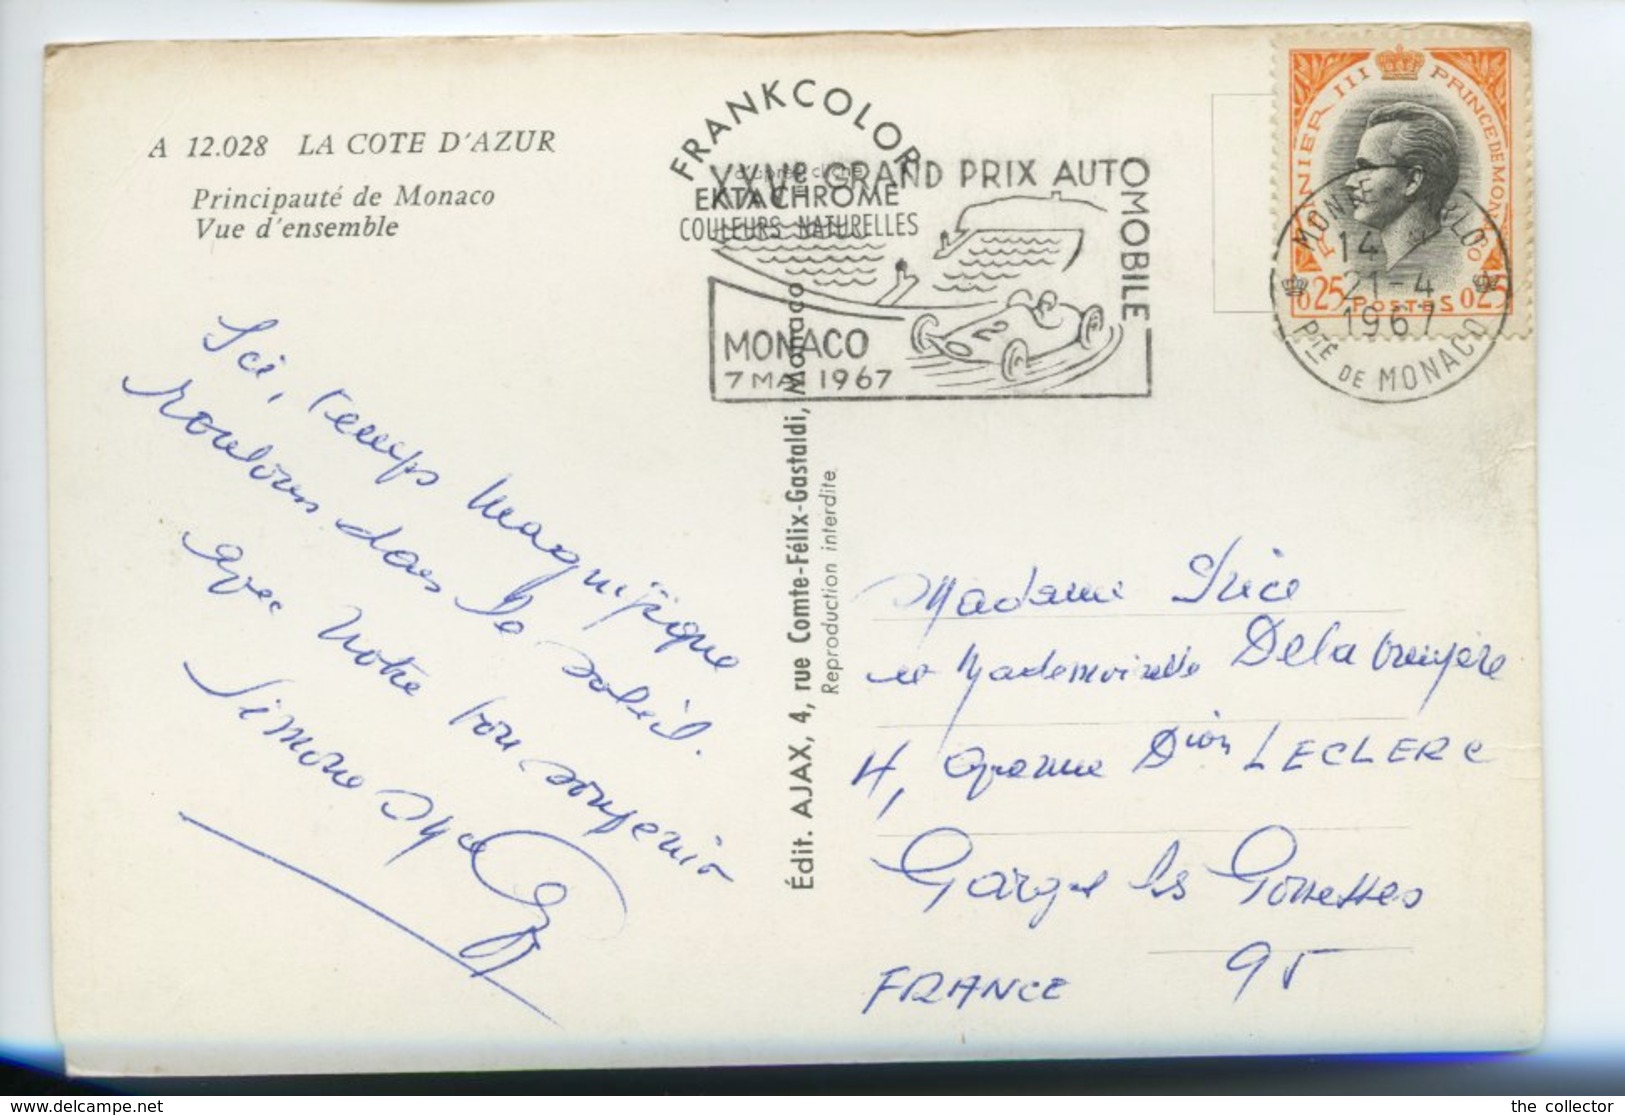 A 12.028 LA COTE D'AZUR
Principauté de Monaco
Vue d'ensemble
FRANKCOLOR
d'après cliché
EKTACHROME
COULEURS NATURELLES
XXVe GRAND PRIX AUTOMOBILE
MONACO
7 MAI 1967
RAINIER III PRINCE DE MONACO
0,25 POSTES 0,25
MONTE-CARLO
14 H
21-4
1967
PTÉ DE MONACO
Ici, temps magnifique
roulons dans le soleil.
avec notre bon souvenir
Simone
Édit. AJAX, 4, rue Comte-Félix-Gastaldi, Monaco
Reproduction interdite
Madame
et Mademoiselle Delabruyère
Dion LECLERC
Garges les Gonesses
95
FRANCE
the collector
www.delcampe.net